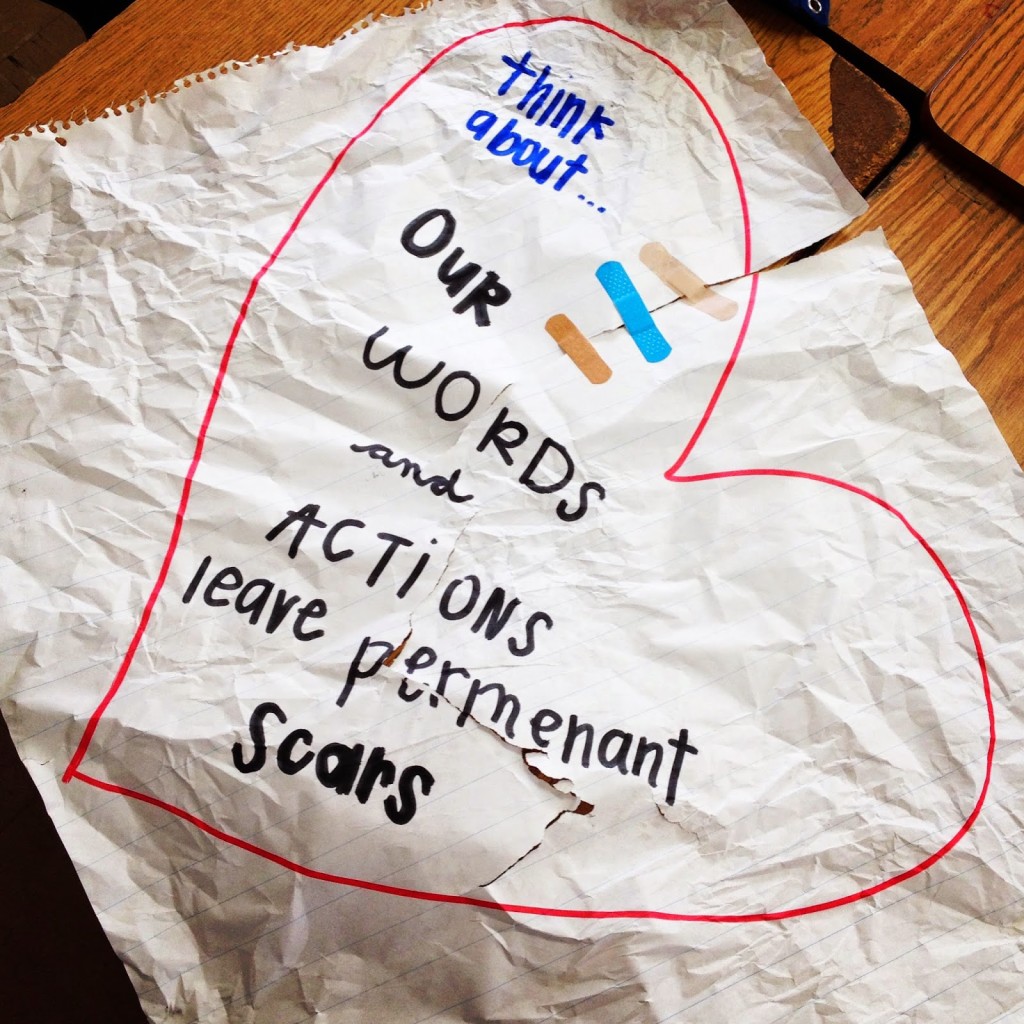 think
about...
OUR
WORDS
and
ACTiONS
leave permenant
Scars